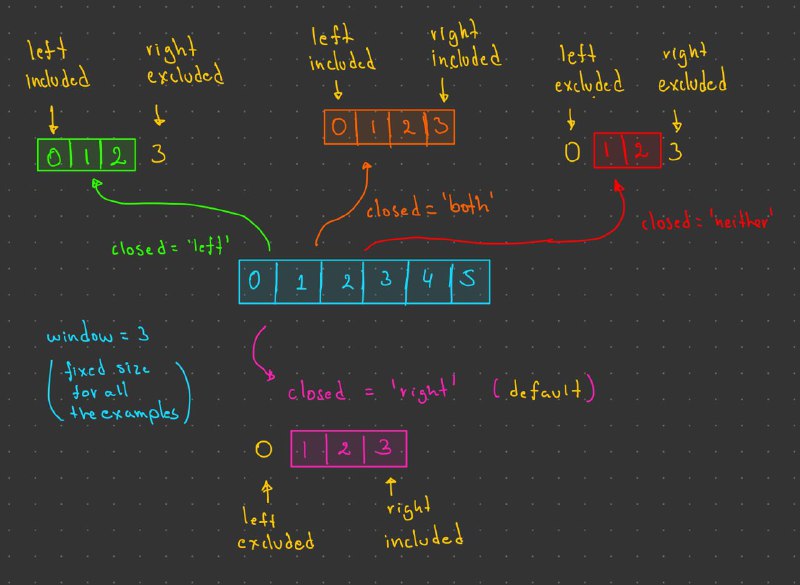 left
included
right
excluded
0 1 2 3
closed = 'left'
left
included
right
included
0 1 2 3
closed = 'both'
left
excluded
right
excluded
0 1 2 3
closed = 'neither'
0 1 2 3 4 5
window = 3
(fixed size
for all
the examples)
closed = 'right' (default)
0 1 2 3
left
excluded
right
included